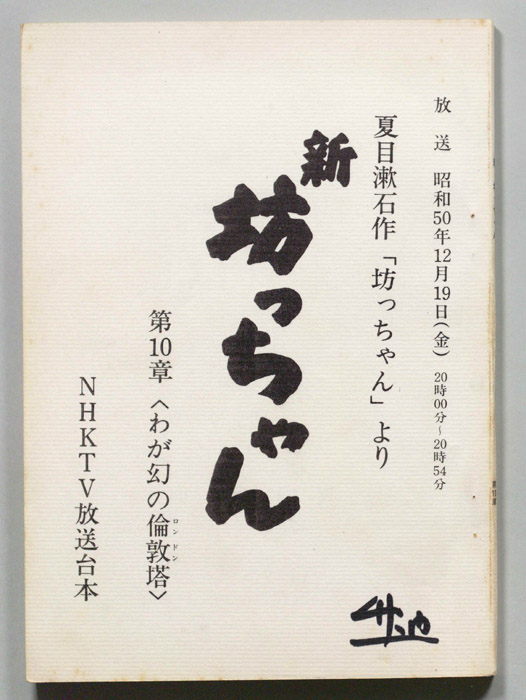 放送 昭和50年12月19日(金) 20時00分～20時54分
夏目漱石作「坊っちゃん」より
新
坊っちゃん
第10章〈わが幻の倫敦塔〉
ロンドン
NHKTV放送台本